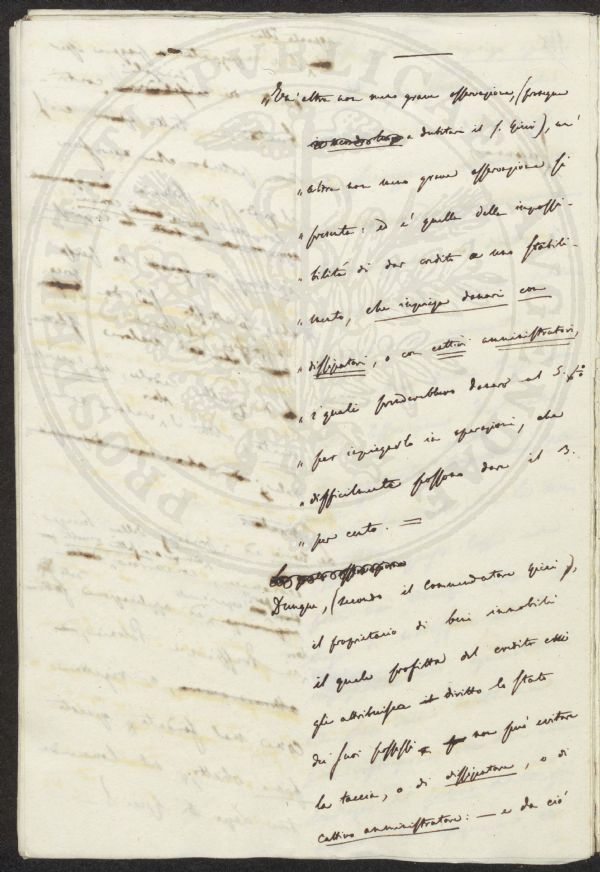 „ Un' altra non meno grave osservazione, (prosegue
a dubitare il S. Quirj), un'
„ altra non meno grave osservazione si
„ presenta: ed è quella della impossi-
„ bilità di dar credito a uno stabili-
„ mento, che impiega danari con
„ dissipatori, o con cattivi amministratori,
„ i quali prenderebbero danaro al 5. p%
„ per impiegarlo in operazioni, che
„ difficilmente possono dare il 3.
„ per cento. =
Dunque, (secondo il Commendatore Quirj),
il proprietario di beni immobili
il quale profitta del credito che
gli attribuisce il diritto lo stato
dei suoi possessi non può evitare
la taccia, o di dissipatore, o di
cattivo amministratore: — e da ciò